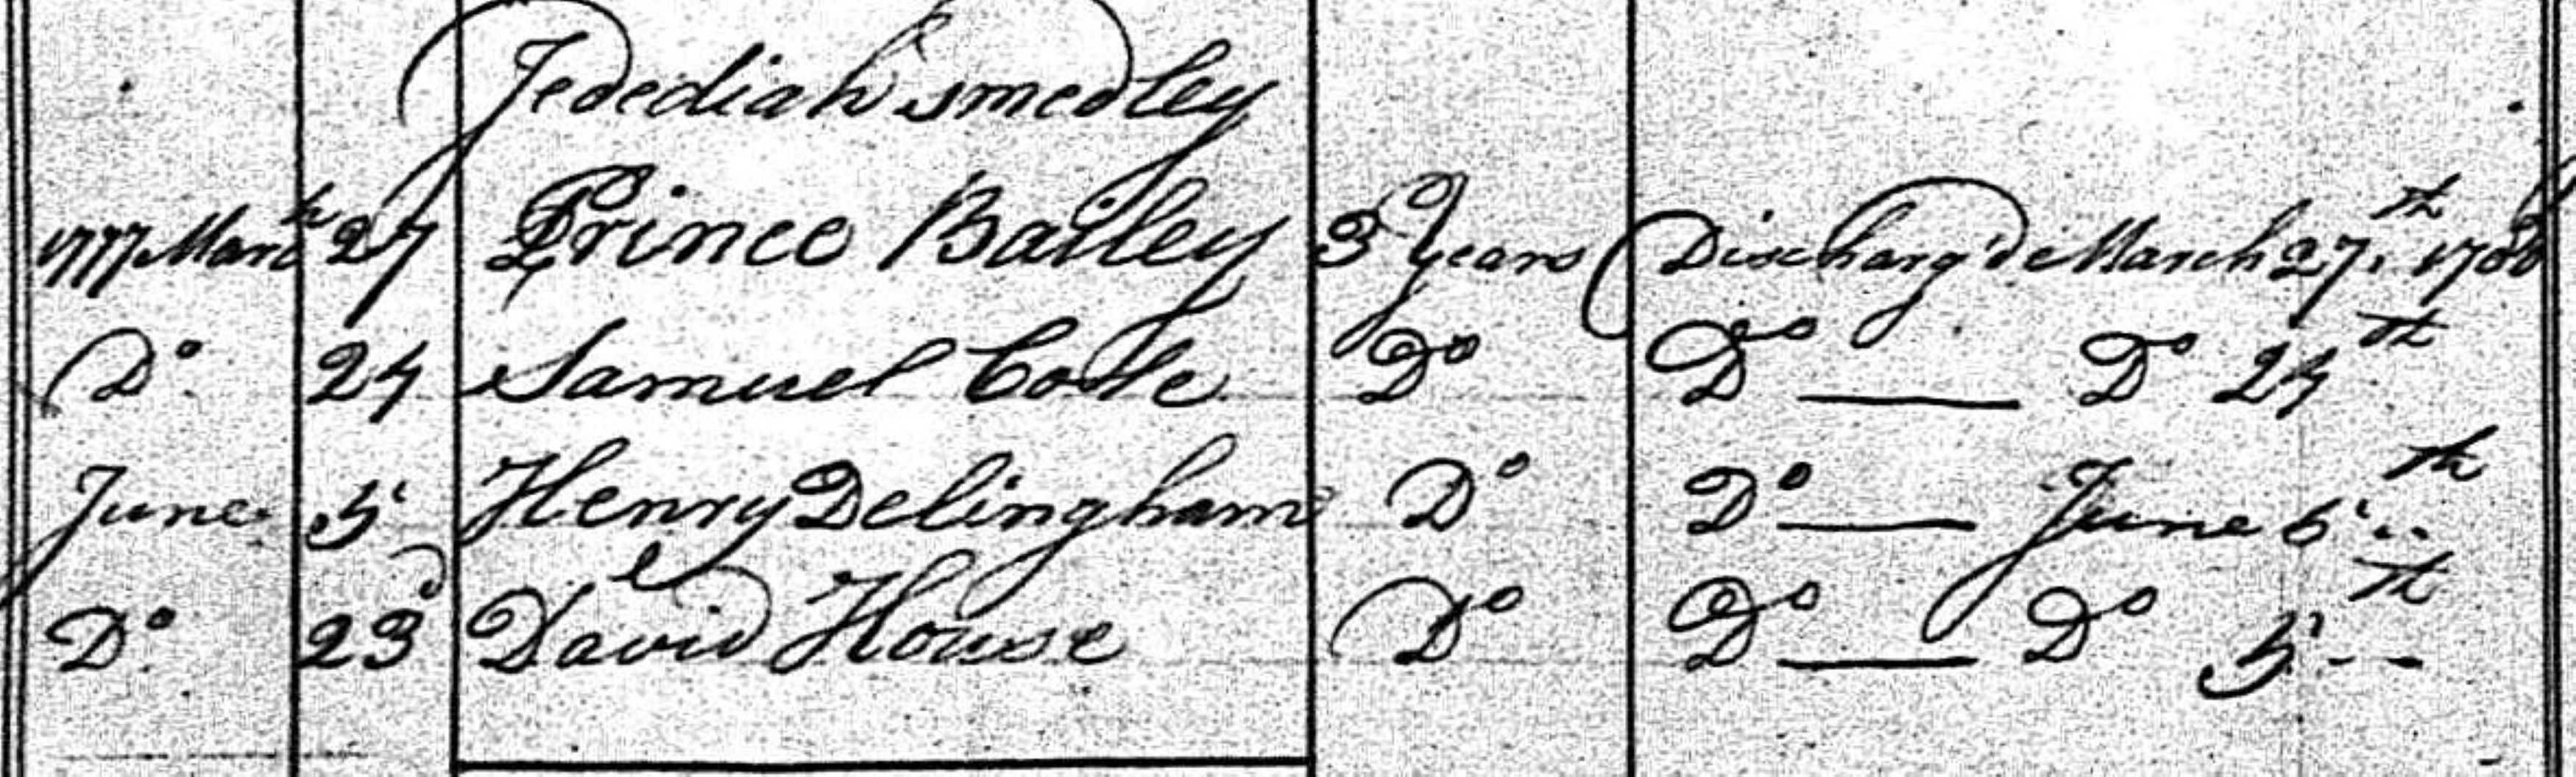 Jedediah Smedley
1777 March 27 Prince Bailey 3 years Discharg'd March 27th 1780
Do 24 Samuel Cole Do Do — Do 24th
June 5 Henry Delingham Do Do — June 5th
Do 23d David House Do Do — Do 5th